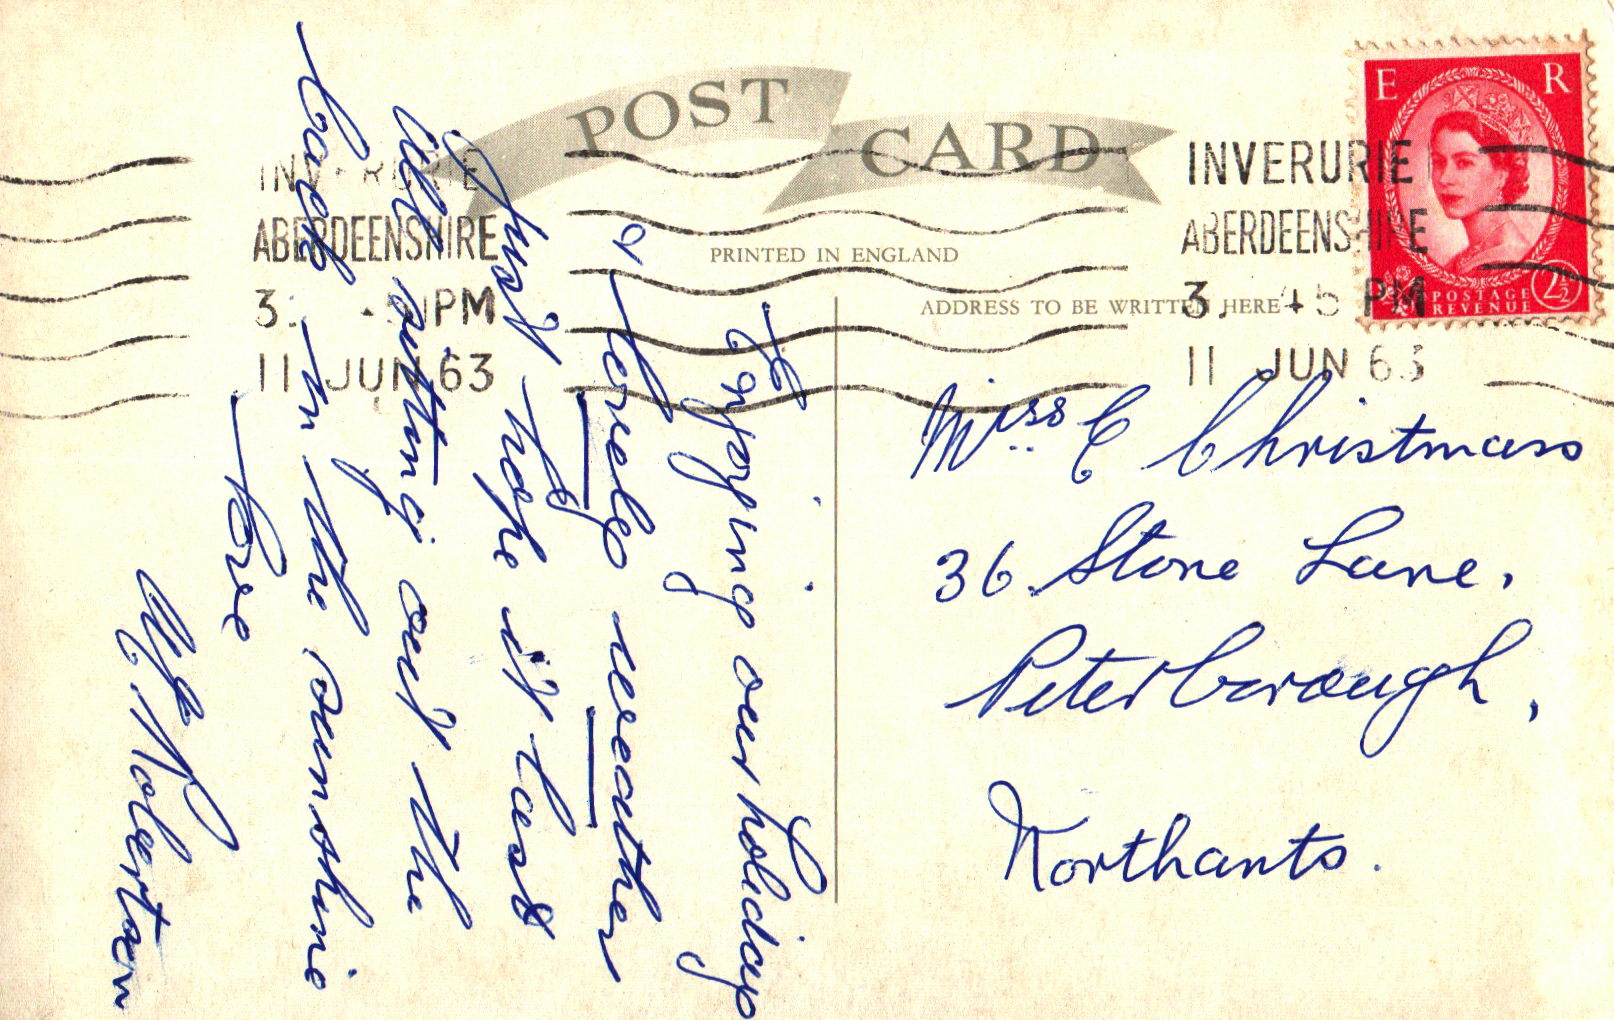 POST CARD
PRINTED IN ENGLAND
ADDRESS TO BE WRITTEN HERE
INVERURIE
ABERDEENSHIRE
3. PM
11 JUN 63
INVERURIE
ABERDEENSHIRE
3. 45 PM
11 JUN 63
E R
POSTAGE
REVENUE
2½
Enjoying our holiday
& lovely weather
Just hope it last
All sitting out the
back in the sunshine
Love
Robertson
Miss C Christmass
36 Stone Lane,
Peterborough,
Northants.